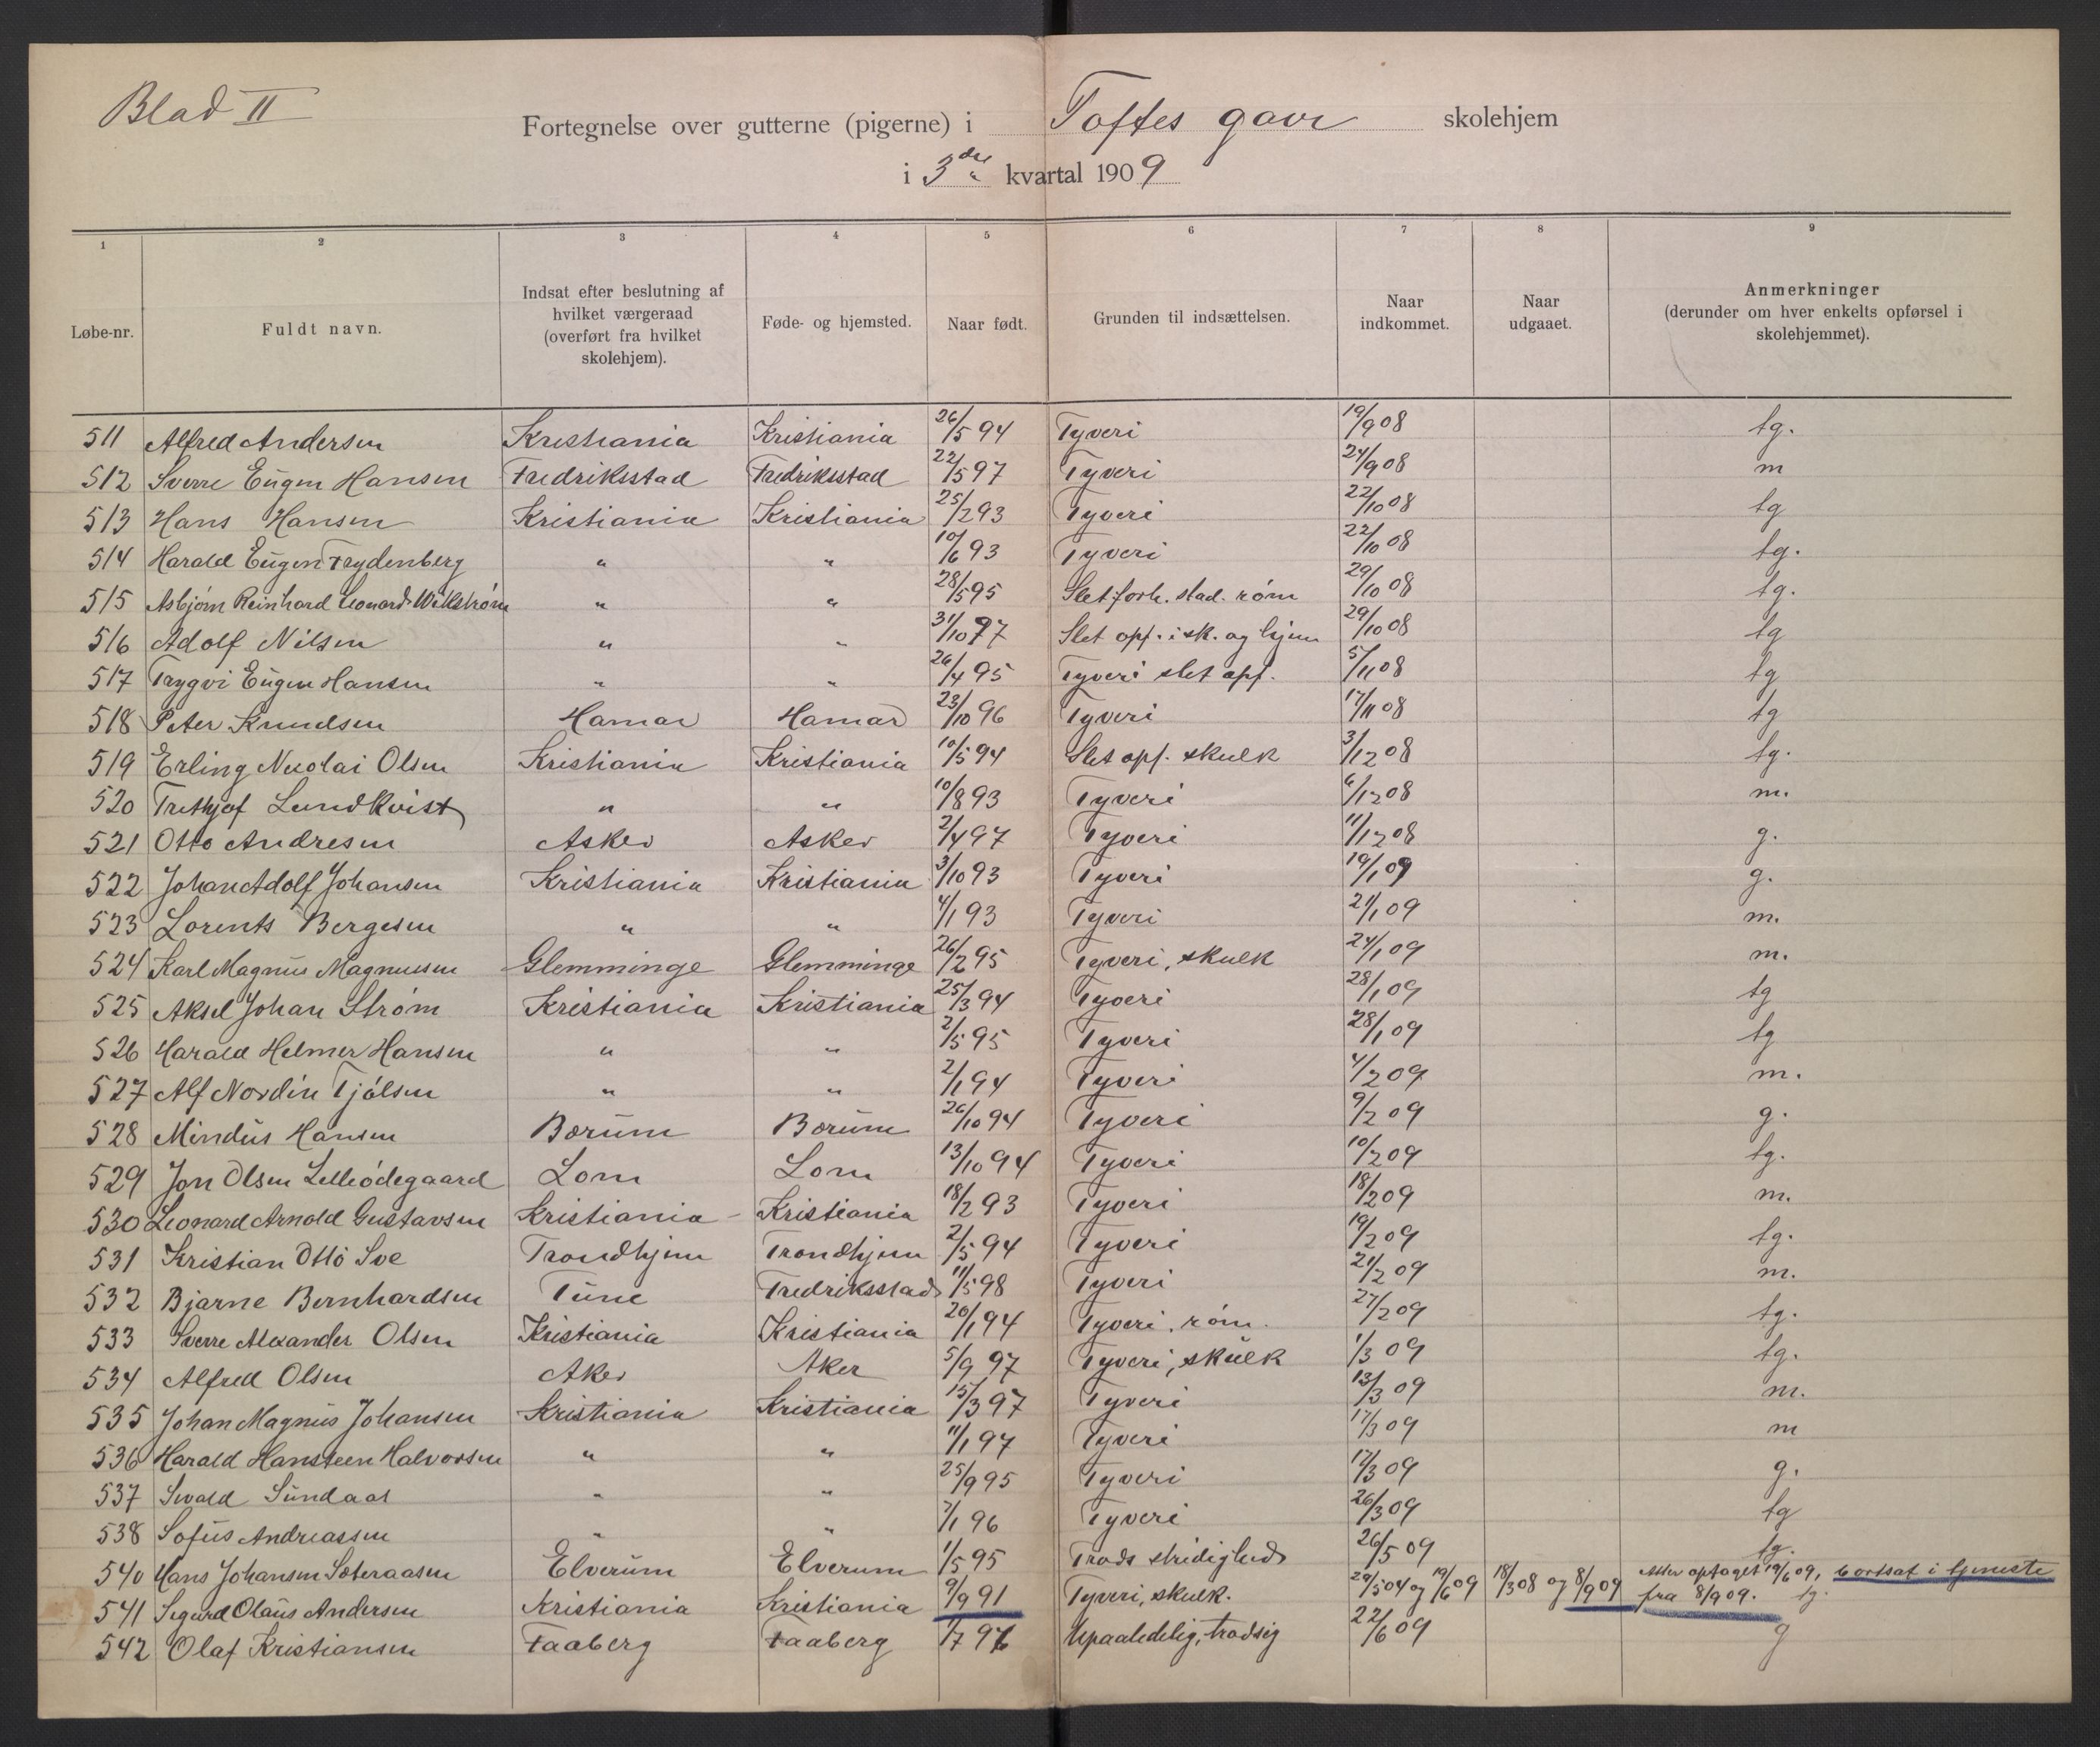 Blad II
Fortegnelse over gutterne (pigerne) i Toftes gave skolehjem
i 3die kvartal 1909
1 2 3 4 5 6 7 8 9
Løbe-nr. Fuldt navn. Indsat efter beslutning af hvilket værgeraad (overført fra hvilket skolehjem). Føde- og hjemsted. Naar født. Grunden til indsættelsen. Naar indkommet. Naar udgaaet. Anmerkninger (derunder om hver enkelts opførsel i skolehjemmet).
511 Alfred Andersen Kristiania Kristiania 26/5 94 Tyveri 19/9 08 tg.
512 Sverre Eugen Hansen Fredriksstad Fredriksstad 22/5 97 Tyveri 24/9 08 m
513 Hans Hansen Kristiania Kristiania 25/2 93 Tyveri 22/10 08 tg
514 Harald Eugen Frydenberg " " 10/6 93 Tyveri 22/10 08 tg.
515 Asbjørn Reinhard Leonard Wikstrøm " " 28/5 95 Slet forh. stad. røm 29/10 08 tg.
516 Adolf Nilsen " " 31/10 97 Slet opf. i sk. og hjem 29/10 08 tg
517 Trygvi Eugen Hansen " " 26/4 95 Tyveri slet opf. 5/11 08 tg
518 Peter Knudsen Hamar Hamar 23/10 96 Tyveri 17/11 08 tg
519 Erling Nicolai Olsen Kristiania Kristiania 10/5 94 Slet opf. skulk 3/12 08 tg.
520 Frithjof Lundkvist " " 10/8 93 Tyveri 6/12 08 m.
521 Otto Andresen Asker Asker 2/4 97 Tyveri 11/12 08 g.
522 Johan Adolf Johansen Kristiania Kristiania 3/10 93 Tyveri 19/1 09 g.
523 Lorents Bergesen " " 4/1 93 Tyveri 21/1 09 m.
524 Karl Magnus Magnussen Glemminge Glemminge 26/2 95 Tyveri, skulk 24/1 09 m.
525 Aksel Johan Strøm Kristiania Kristiania 25/3 94 Tyveri 28/1 09 tg
526 Harald Helmer Hansen " " 2/5 95 Tyveri 28/1 09 tg
527 Alf Nordin Tjølsen " " 2/1 94 Tyveri 4/2 09 m.
528 Mindus Hansen Bærum Bærum 26/10 94 Tyveri 9/2 09 g.
529 Jon Olsen Lilleødegaard Lom Lom 13/10 94 Tyveri 10/2 09 tg.
530 Leonard Arnold Gustavsen Kristiania Kristiania 18/2 93 Tyveri 18/2 09 m.
531 Kristian Otto Sve Trondhjem Trondhjem 2/5 94 Tyveri 19/2 09 tg.
532 Bjarne Bernhardsen Tune Fredriksstad 11/5 98 Tyveri 21/2 09 m.
533 Sverre Alexander Olsen Kristiania Kristiania 20/1 94 Tyveri, røm. 27/2 09 tg.
534 Alfred Olsen Aker Aker 5/9 97 Tyveri, skulk 1/3 09 tg.
535 Johan Magnus Johansen Kristiania Kristiania 15/3 97 Tyveri 13/3 09 m.
536 Harald Hansteen Halvorsen " " 11/1 97 Tyveri 17/3 09 m
537 Sivald Sundaas " " 25/9 95 Tyveri 17/3 09 g.
538 Sofus Andreassen " " 7/1 96 Tyveri 26/3 09 tg
540 Hans Johansen Sæteraasen Elverum Elverum 1/5 95 Trods stridighed 26/5 09 tg.
541 Sigurd Olaus Andersen Kristiania Kristiania 9/9 91 Tyveri, skulk. 29/5 04 og 19/6 09 18/3 08 og 8/9 09 Atter optaget 19/6 09, bortsat i tjeneste fra 8/9 09. tg.
542 Olaf Kristiansen Faaberg Faaberg 1/7 96 Upaalidelig, trodsig 22/6 09 g